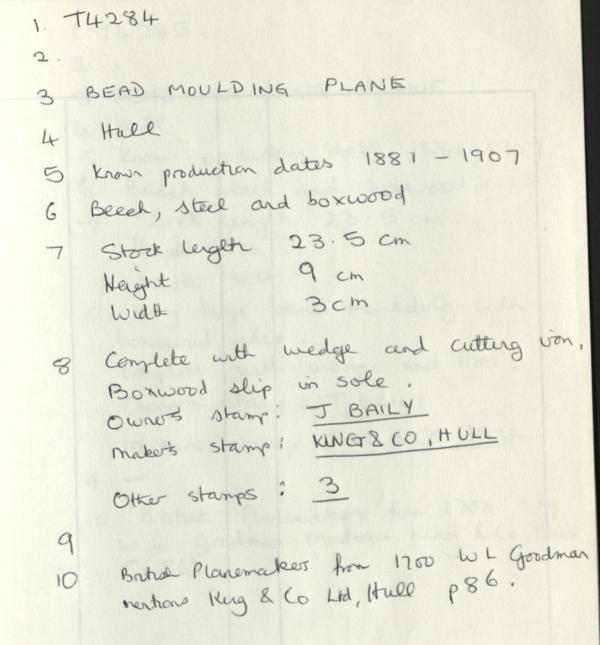 1. T4284
2.
3 BEAD MOULDING PLANE
4 Hull
5 Known production dates 1881 - 1907
6 Beech, steel and boxwood
7 Stock length 23.5 cm
Height 9 cm
Width 3cm
8 Complete with wedge and cutting iron,
Boxwood slip in sole.
Owners stamp: J BAILY
makers stamp: KING & CO, HULL
Other stamps: 3
9
10 British Planemakers from 1700 W L Goodman
mentions King & Co Ltd, Hull p86.